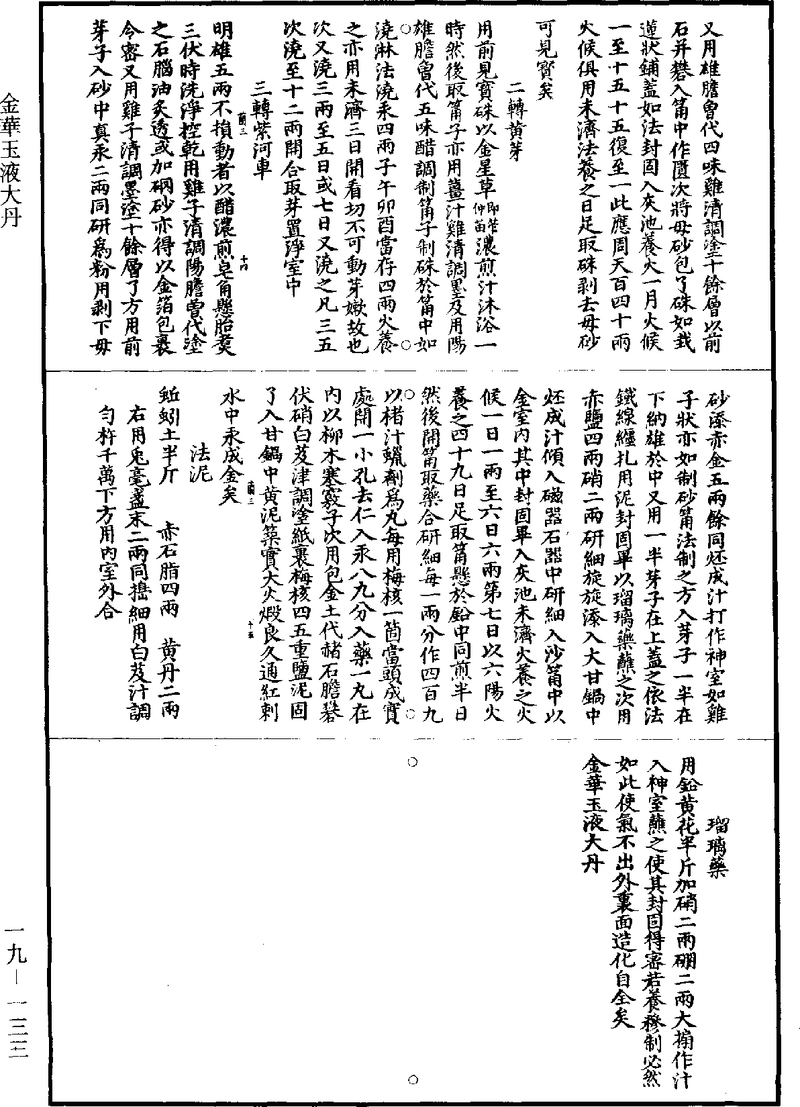 又用雄膽曾代四味雞清調塗十餘層以前
石并礬入筩中作匱次將母砂包了硃如栽
蓮狀鋪蓋如法封固入灰池養火一月火候
一至十五十五復至一此應周天百四十兩
火候俱用未濟法養之日足取硃剥去母砂
可見寳矣
二轉黄芽
用前見寳硃以金星草濃煎汁沐浴一
時然後取筩子亦用薑汁雞清調墨及用陽
雄膽曾代五味醋調制筩子制硃於筩中如
澆淋法澆汞四兩子午卯酉當存四兩火養
之亦用未濟三日開看切不可動芽嫩故也
次又澆三兩至五日或七日又澆之凡三五
次澆至十二兩開合取芽置淨室中
三轉紫河車
明雄五兩不損動者以醋濃煎皂角懸胎煑
三伏時洗淨控乾用雞子清調陽膽曾代塗
之石腦油炙透或加硇砂亦得以金箔包裹
令密又用雞子清調墨塗十餘層了方用前
芽子入砂中真汞二兩同研爲粉用剥下母
砂添赤金五兩餘同烶成汁打作神室如雞
子狀亦如制砂筩法制之方入芽子一半在
下納雄於中又用一半芽子在上蓋之依法
鐵線纏扎用泥封固畢以瑠璃藥蘸之次用
赤鹽四兩硝二兩研細旋旋添入大甘鍋中
烶成汁傾入磁器石器中研細入沙筩中以
金室内其中封固畢入灰池未濟火養之火
候一日一兩至六日六兩第七日以六陽火
養之四十九日足取筩懸於鉛中同煎半日
然後開筩取藥合研細每一兩分作四百九
以楮汁蠟劑爲丸每用梅核一箇當頭成實
處開一小孔去仁入汞八九分入藥一丸在
内以柳木塞竅子次用包金土代赭石膽礬
伏硝白芨津調塗紙裹梅核四五重鹽泥固
了入甘鍋中黄泥築實大火煅良久通紅刺
水中汞成金矣
法泥
蚯蚓土半斤　赤石脂四兩　黄丹二兩
右用兎毫盞末二兩同擣細用白芨汁調
匀杵千萬下方用内室外合
瑠璃藥
用鉛黄花半斤加硝二兩硼二兩大搧作汁
入神室蘸之使其封固得密若養穇制必然
如此使氣不出外裏面造化自全矣
金華玉液大丹
金華玉液大丹
一九－一三三